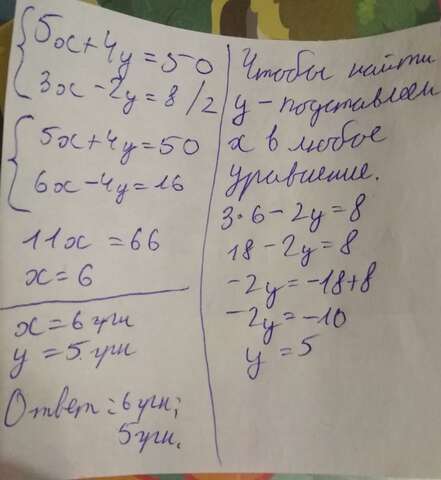 5x+4y=50
3x-2y=8 /2
5x+4y=50
6x-4y=16
11x=66
x=6
x=6 грн
y=5 грн
Ответ: 6 грн;
5 грн.
Чтобы найти
y - подставляем
x в любое
уравнение.
3·6-2y=8
18-2y=8
-2y=-18+8
-2y=-10
y=5